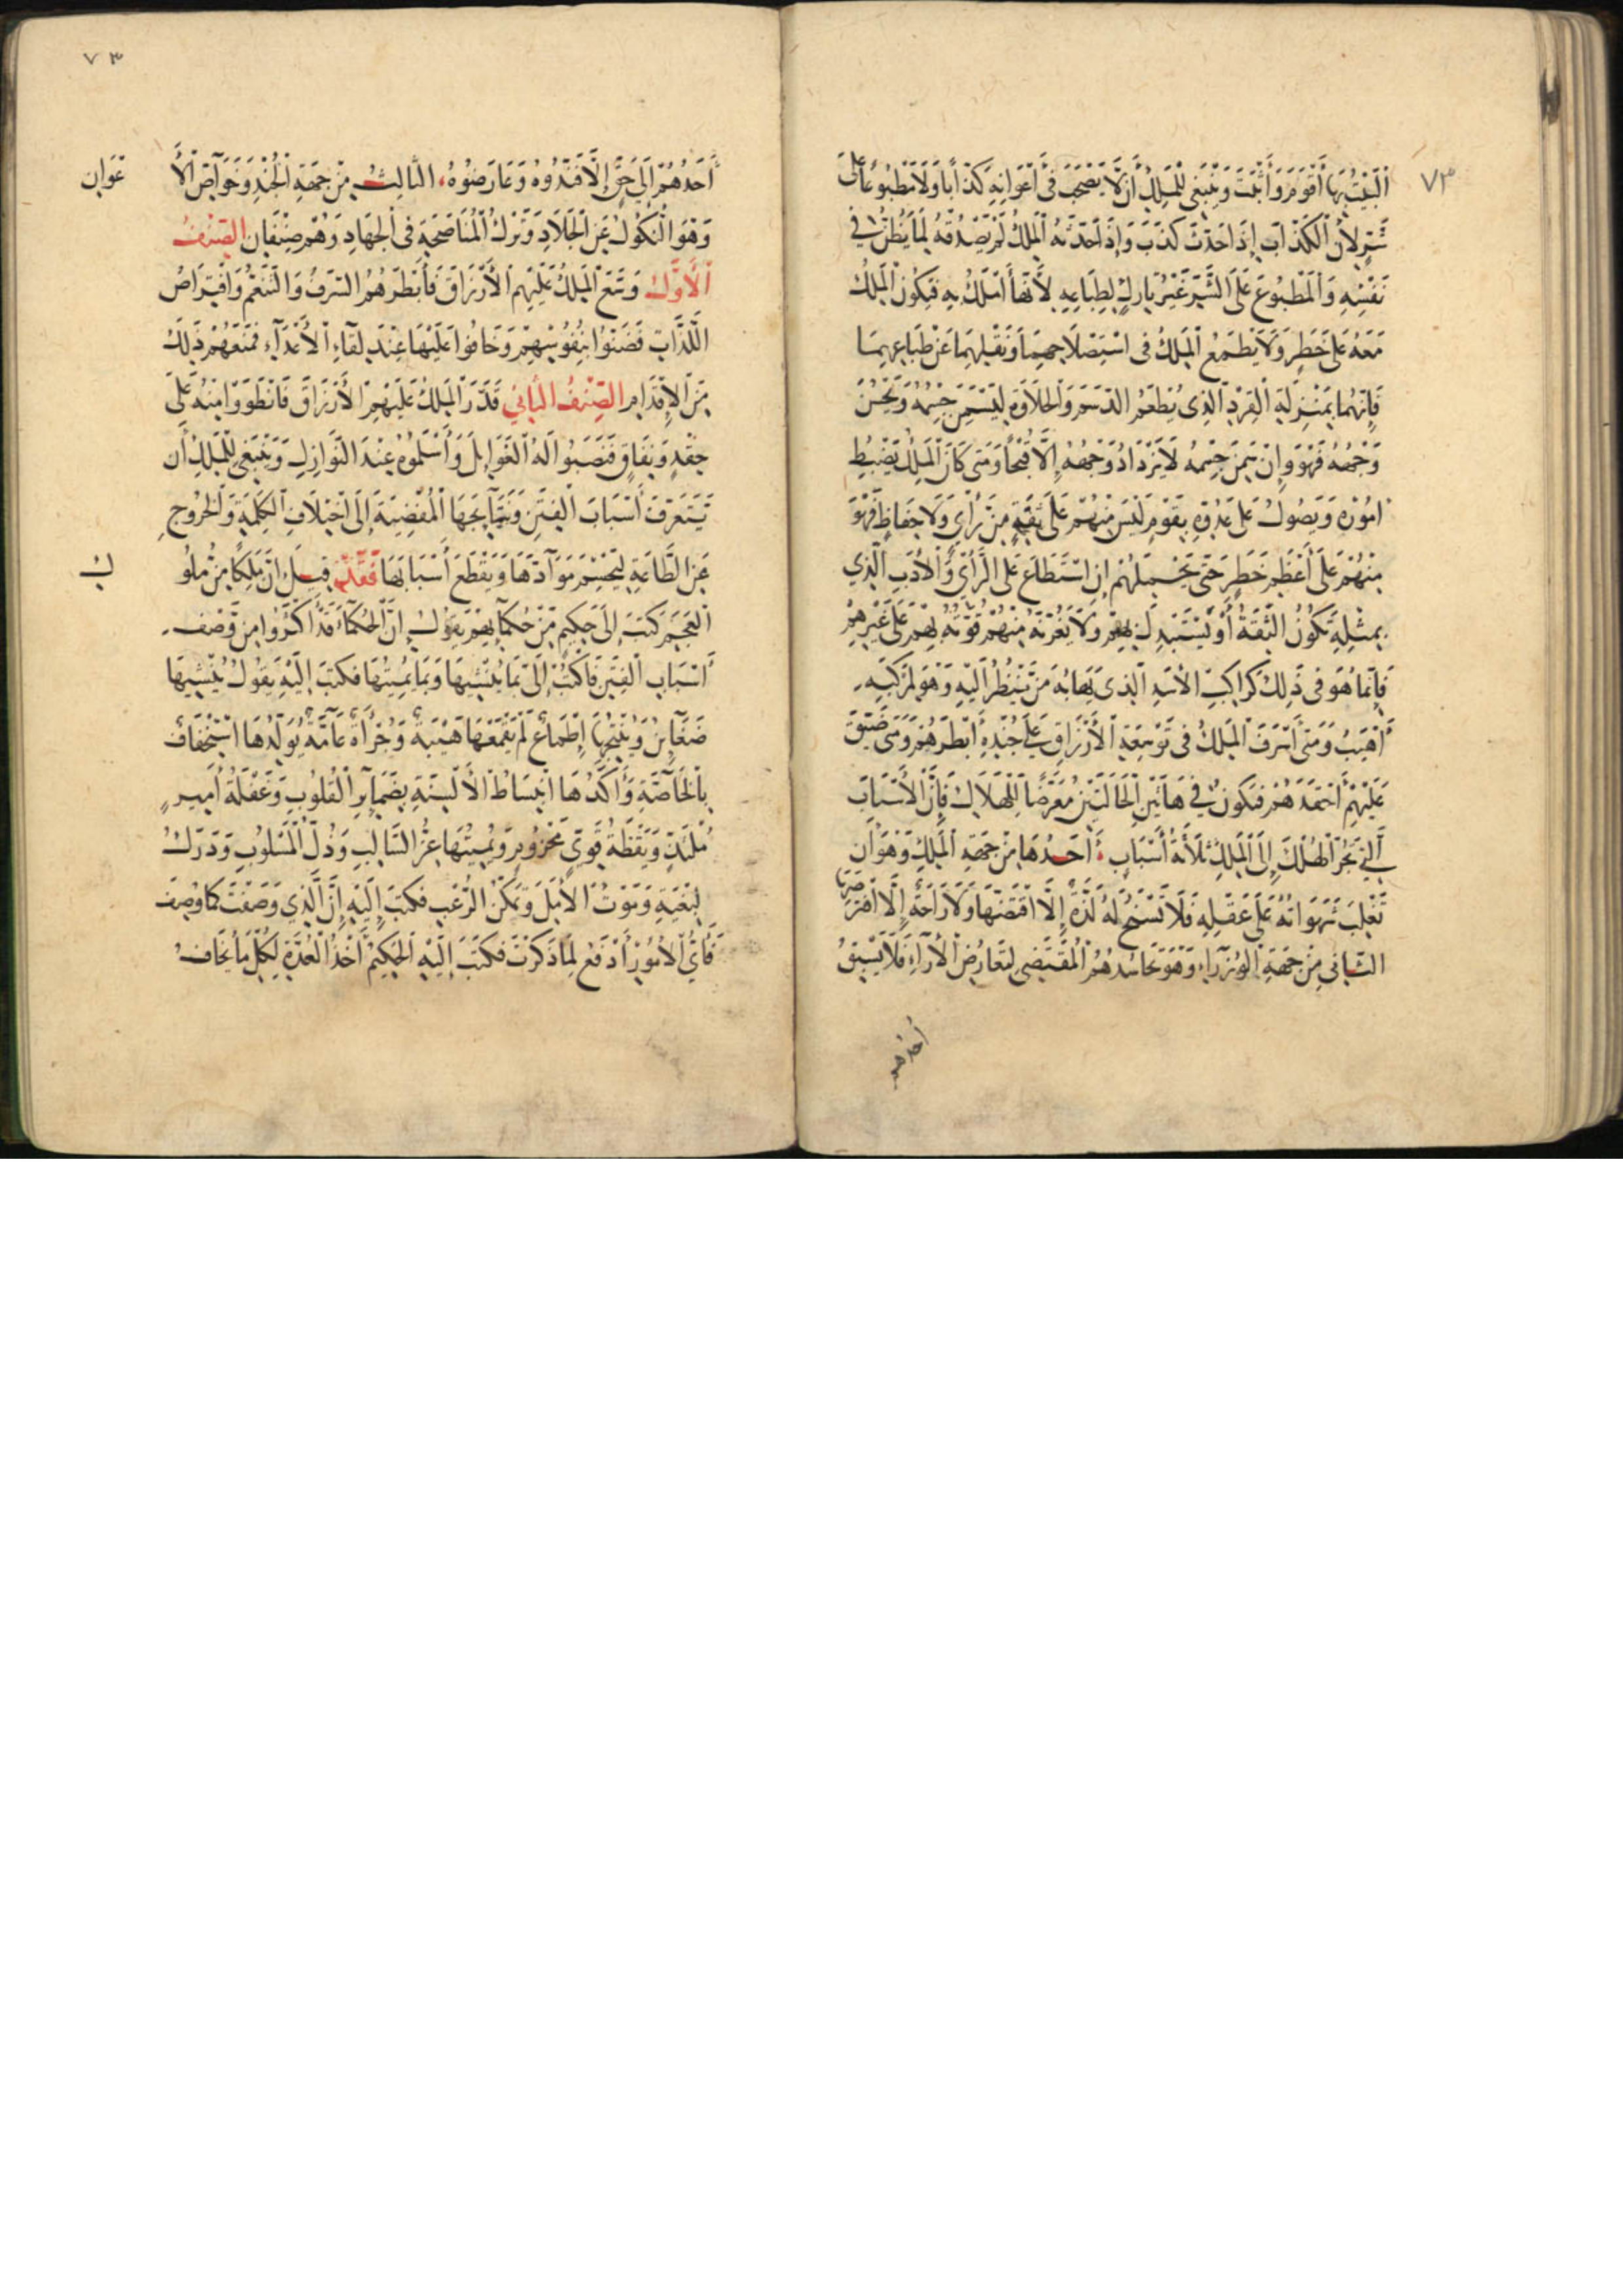 ٧٣
اَلْبَيْتُ بِهَا أَقْوَمَ وَأَثْبَتَ وَيَنْبَغِى لِلْمَلِكِ أَنْ لَا يَصْحَبَ فِى أَعْوَانِهِ كَذَّابًا وَلَا مَطْبُوعًا عَلَى
شَرٍّ لِأَنَّ الْكَذَّابَ إِذَا حَدَّثَ كَذَبَ وَإِذَا حَدَّثَهُ الْمَلِكُ لَمْ يَصْدُقْهُ لِمَا يَظُنُّ فِي
نَفْسِهِ وَالْمَطْبُوعَ عَلَى الشَّرِّ غَيْرُ تَارِكٍ لِطِبَاعِهِ لِأَنَّهَا أَمْلَكُ بِهِ فَيَكُونُ الْمَلِكُ
مَعَهُ عَلَى خَطَرٍ وَلَا يَطْمَعُ الْمَلِكُ فِى اسْتِصْلَاحِهِمَا وَنَقْلِهِمَا عَنْ طِبَاعِهِمَا
فَإِنَّهُمَا بِمَنْزِلَةِ الْقِرْدِ الَّذِى يُطْعَمُ الدَّسَمَ وَالْحَلَاوَةَ لِيَسْمَنَ جِسْمُهُ وَيَحْسُنَ
وَجْهُهُ فَهُوَ وَإِنْ سَمِنَ جِسْمُهُ لَا يَزْدَادُ وَجْهُهُ إِلَّا قُبْحًا وَمَتَى كَانَ الْمَلِكُ يَضْبِطُ
أُمُورَهُ وَيَصُولُ عَلَى عَدُوِّهِ بِقَوْمٍ لَيْسَ مِنْهُمْ عَلَى ثِقَةٍ مِنْ رَأْيٍ وَلَا حِفَاظٍ فَهُوَ
مِنْهُمْ عَلَى أَعْظَمِ خَطَرٍ حَتَّى يَحْمِلَهُمْ إِنِ اسْتَطَاعَ عَلَى الرَّأْيِ وَالْأَدَبِ الَّذِي
بِمِثْلِهِ تَكُونُ الثِّقَةُ أَوْ يَسْتَبْدِلَ بِهِمْ وَلَا يَغُرَّنَّهُ مِنْهُمْ قُوَّتُهُ بِهِمْ عَلَى غَيْرِهِمْ
فَإِنَّمَا هُوَ فِى ذَلِكَ كَرَاكِبِ الْأَسَدِ الَّذِى يَهَابُهُ مَنْ يَنْظُرُ إِلَيْهِ وَهُوَ لِمَرْكَبِهِ
أَهْيَبُ وَمَتَى أَسْرَفَ الْمَلِكُ فِى تَوْسِعَةِ الْأَرْزَاقِ عَلَى جُنْدِهِ أَبْطَرَهُمْ وَمَتَى ضَيَّقَ
عَلَيْهِمْ أَحْقَدَهُمْ فَيَكُونُ فِي هَاتَيْنِ الْحَالَتَيْنِ مُعَرَّضًا لِلْهَلَاكِ فَإِنَّ الْأَسْبَابَ
الَّتِي تَجُرُّ الْهُلْكَ إِلَى الْمَلِكِ ثَلَاثَةُ أَسْبَابٍ أَحَدُهَا مِنْ جِهَةِ الْمَلِكِ وَهُوَ أَنْ
تَغْلِبَ شَهَوَاتُهُ عَلَى عَقْلِهِ فَلَا تَسْنَحُ لَهُ لَذَّةٌ إِلَّا اقْتَضَّهَا وَلَا رَاحَةٌ إِلَّا افْتَرَصَهَا
الثَّانِى مِنْ جِهَةِ الْوُزَرَاءِ وَهُوَ تَحَاسُدُهُمُ الْمُقْتَضِى لِتَعَارُضِ الْآرَاءِ فَلَا يَسْبِقُ
أحدهم
٧٣
أَحَدُهُمْ إِلَى حَقٍّ إِلَّا فَنَّدُوهُ وَعَارَضُوهُ الثَّالِثُ مِنْ جِهَةِ الْجُنْدِ وَخَوَاصِّ الْأَعْوَانِ
وَهُوَ النُّكُولُ عَنِ الْجِلَادِ وَتَرْكُ الْمُنَاصَحَةِ فِى الْجِهَادِ وَهُمْ صِنْفَانِ الصِّنْفُ
الْأَوَّلُ وَسَّعَ الْمَلِكُ عَلَيْهِمُ الْأَرْزَاقَ فَأَبْطَرَهُمُ السَّرَفُ وَالتَّنَعُّمُ وَافْتِرَاصُ
اللَّذَّاتِ فَضَنُّوا بِنُفُوسِهِمْ وَخَافُوا عَلَيْهَا عِنْدَ لِقَاءِ الْأَعْدَآءِ فَمَنَعَهُمْ ذَلِكَ
مِنَ الْإِقْدَامِ الصِّنْفُ الثَّانِي قَدَّرَ الْمَلِكُ عَلَيْهِمُ الْأَرْزَاقَ فَانْطَوَوْا مِنْهُ عَلَى
حِقْدٍ وَنِفَاقٍ فَنَصَبُوا لَهُ الْغَوَايِلَ وَأَسْلَمُوهُ عِنْدَ النَّوَازِلِ وَيَنْبَغِى لِلْمَلِكِ أَنْ
يَتَعَرَّفَ أَسْبَابَ الْفِتَنِ وَنَتَايِجَهَا الْمُفْضِيَةَ إِلَى اخْتِلَافِ الْكَلِمَةِ وَالْخُرُوجِ
عَنِ الطَّاعَةِ لِيَحْسِمَ مَوَآدَّهَا وَيَقْطَعَ أَسْبَابَهَا فَقَدْ قِيلَ إِنَّ مَلِكًا مِنْ مُلُوكِ
الْعَجَمِ كَتَبَ إِلَى حَكِيمٍ مِنْ حُكَمَآيِهِمْ يَقُولُ إِنَّ الْحُكَمَآءَ قَدْ أَكْثَرُوا مِنْ وَصْفِ
أَسْبَابِ الْفِتَنِ فَاكْتُبْ إِلَىَّ بِمَا يُنْشِيهَا وَبِمَا يُمِيتُهَا فَكَتَبَ إِلَيْهِ يَقُولُ يُنْشِيهَا
ضَغَآيِنُ وَيُنْتِجُهَا إِطْمَاعٌ لَمْ يَقْمَعْهَا هَيْبَةٌ وَجُرْأَةُ عَآمَّةٍ يُوَلِّدُهَا اسْتِخْفَافٌ
بِالْخَآصَّةِ وَأَكَّدَهَا انْبِسَاطُ الْأَلْسِنَةِ بِضَمَآيِرِ الْقُلُوبِ وَغَفْلَةُ أَمِيرٍ
مُلْتَذٍّ وَيَقْظَةُ قَوِيٍّ مَحْرُومٍ وَيُمِيتُهَا عِزُّ السَّالِبِ وَذُلُّ الْمَسْلُوبِ وَدَرَكُ
الْبُغْيَةِ وَمَوْتُ الْأَمَلِ وَتَمَكُّنُ الرُّعْبِ فَكَتَبَ إِلَيْهِ إِنَّ الَّذِي وَصَفْتَ كَمَا وُصِفَ
فَأَيُّ الْأُمُورِ أَدْفَعُ لِمَا ذَكَرْتَ فَكَتَبَ إِلَيْهِ الْحَكِيمُ أَخْذُ الْعُدَّةِ لِكُلِّ مَا يُخَافُ